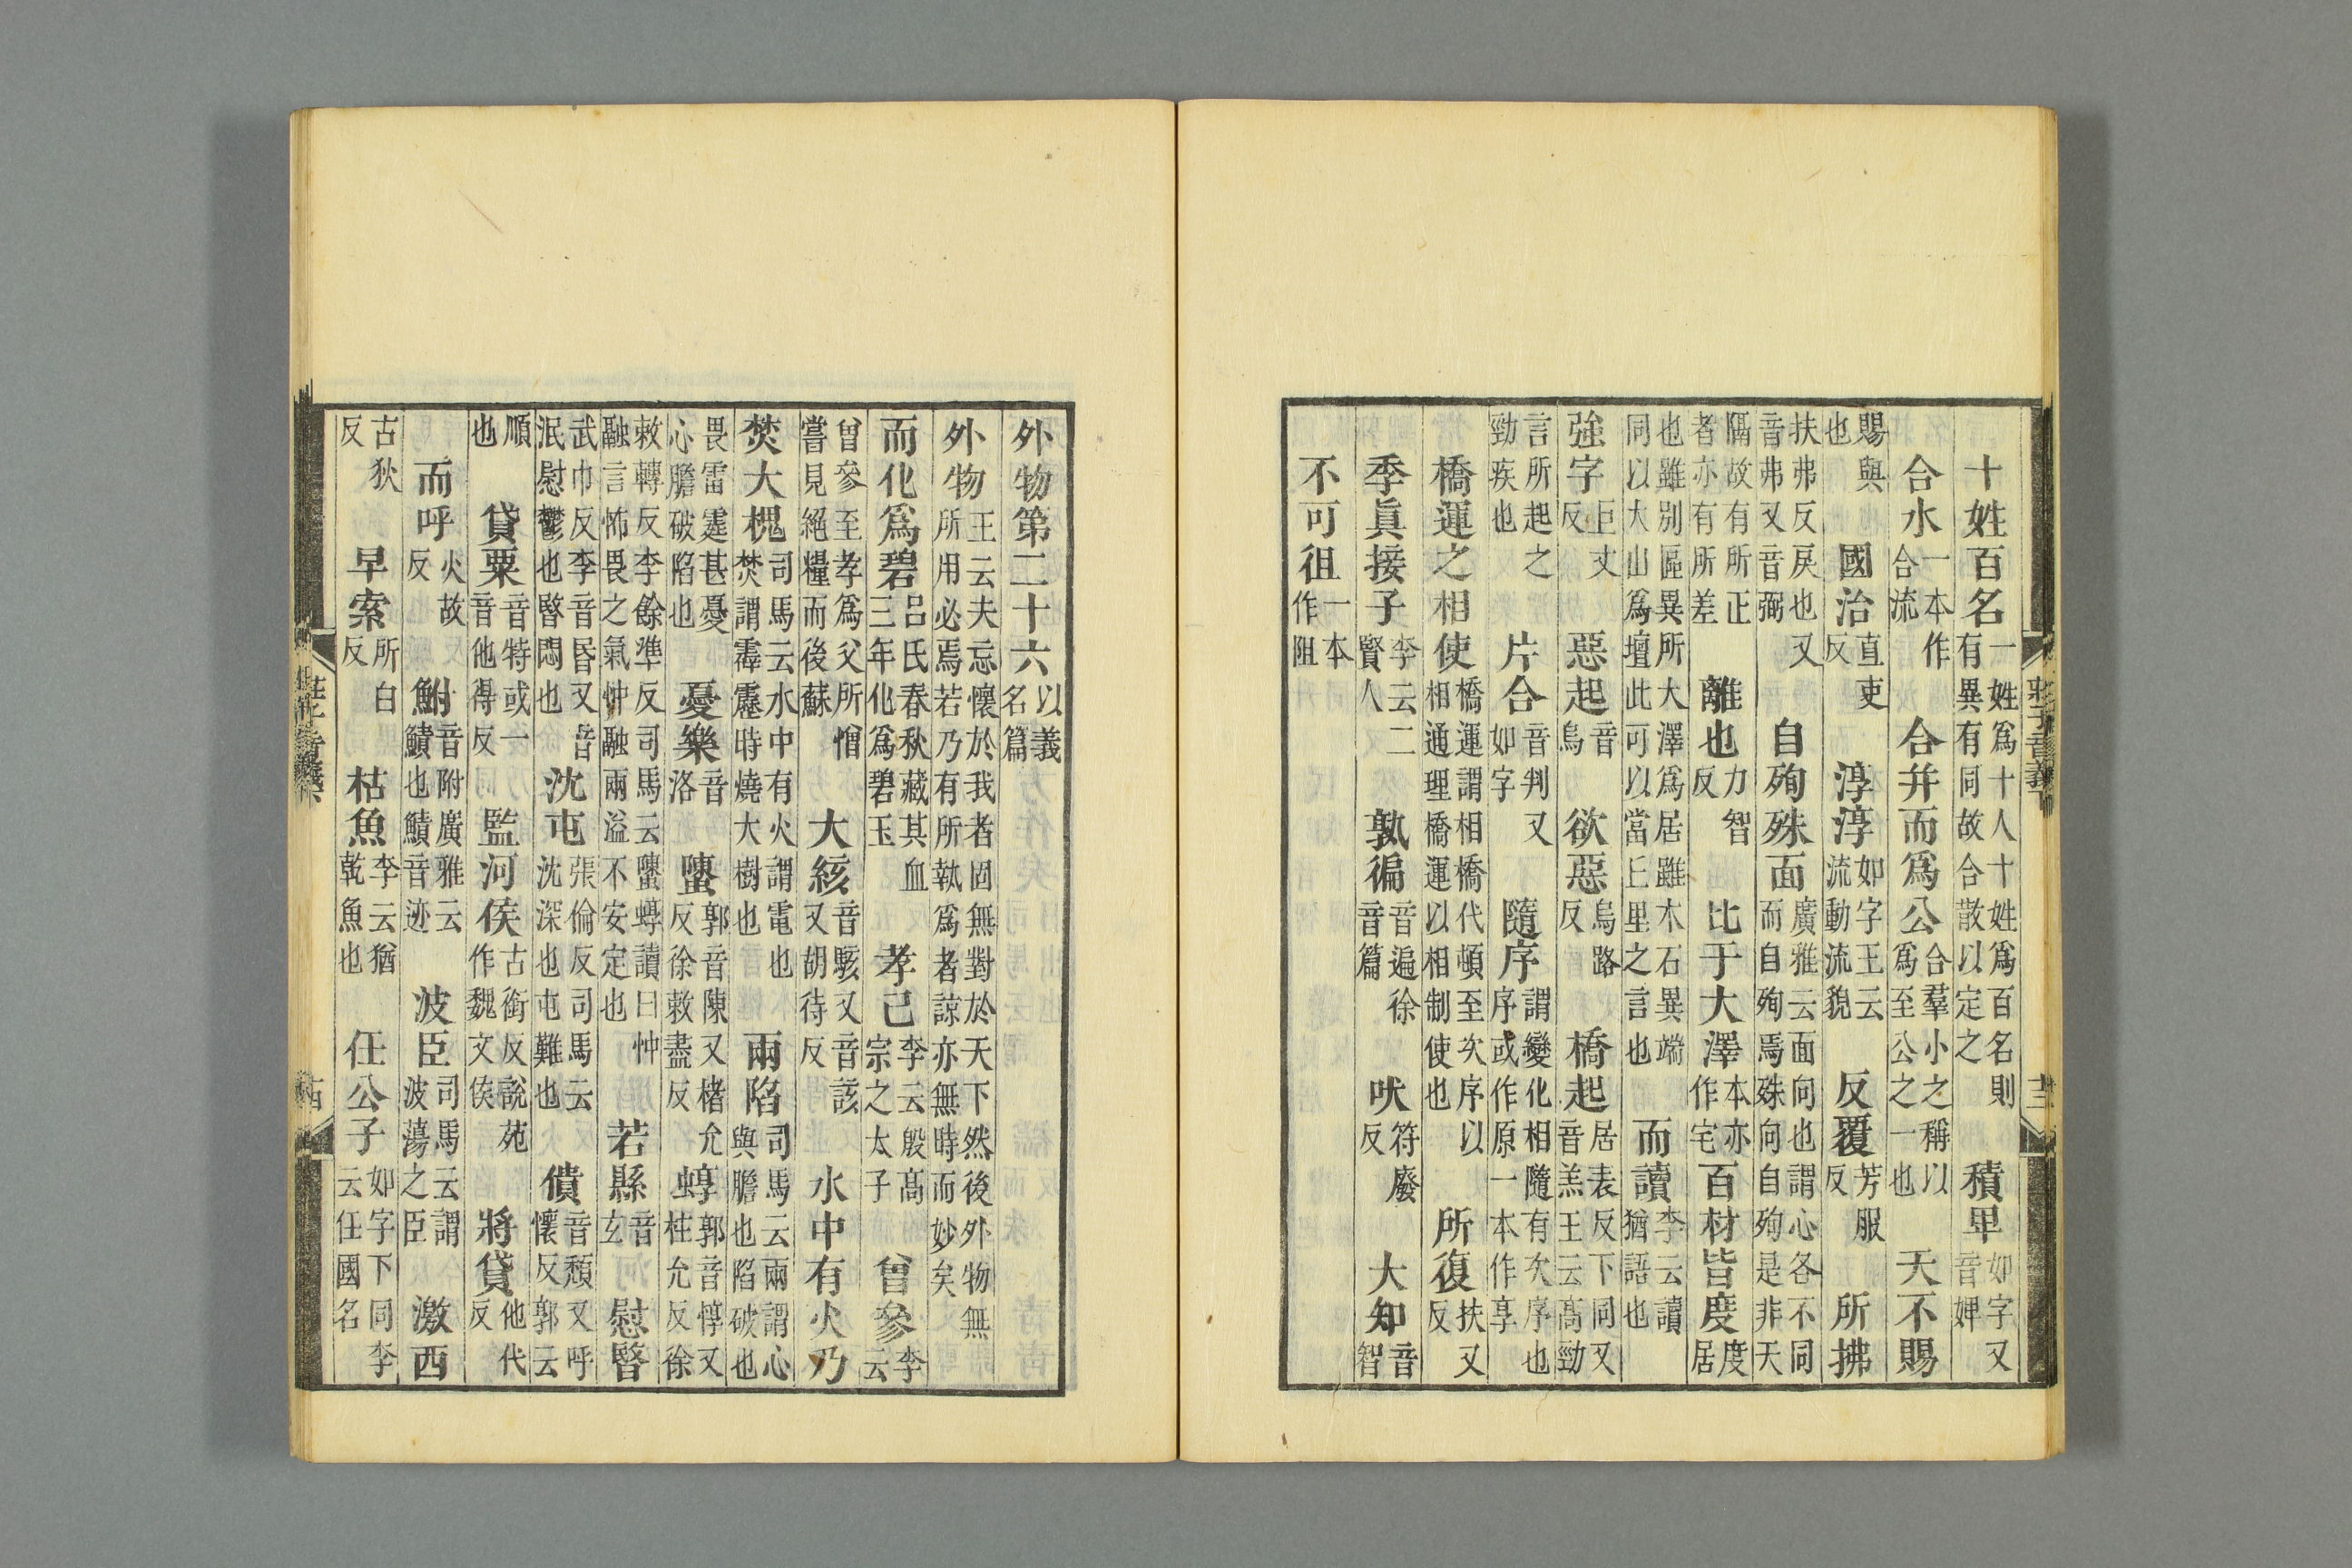 莊子音義下 十三
十姓百名一姓爲十人十姓爲百名則有異有同故合散以定之 積卑如字又音婢
合水一本作合流 合并而爲公合羣小之稱以爲至公之一也 天不賜
賜與也 國治直吏反 淳淳如字王云流動流貌 反覆芳服反 所拂
扶弗反戾也又音弗又音弼 自殉殊面廣雅云面向也謂心各不同而自殉焉殊向自殉是非天
隔故有所正者亦有所差 離也力智反 比于大澤本亦作宅 百材皆度度居
也雖別區異所大澤爲居雖木石異端同以大山爲壇此可以當丘里之言也 而讀李云讀猶語也
強字巨丈反 惡起音烏 欲惡烏路反 橋起居表反下同又音羔王云高勁
言所起之勁疾也 片合音判又如字 隨序謂變化相隨有次序也序或作原一本作享
橋運之相使橋運謂相橋代頓至次序以相通理橋運以相制使也 所復扶又反
季眞接子李云二賢人 孰徧音遍徐音篇 吠符廢反 大知音智
不可徂一本作阻
外物第二十六以義名篇
外物王云夫忘懷於我者固無對於天下然後外物無所用必焉若乃有所執爲者諒亦無時而妙矣
而化爲碧呂氏春秋藏其血三年化爲碧玉 孝己李云殷高宗之太子 曾參李云
曾參至孝爲父所憎嘗見絕糧而後蘇 大絯音駭又音該又胡待反 水中有火乃
焚大槐司馬云水中有火謂電也焚謂霹靂時燒大樹也 兩陷司馬云兩謂心與膽也陷破也
畏雷霆甚憂心膽破陷也 憂樂音洛 螴郭音陳又楮允反徐敕盡反 蜳郭音惇又柱允反徐
敕轉反李餘準反司馬云螴蜳讀曰忡融言怖畏之氣忡融兩溢不安定也 若縣音玄 慰暋
武巾反李音昬又音泯慰鬱也暋悶也 沈屯張倫反司馬云沈深也屯難也 僓音頹又呼懷反郭云
順也 貸粟音特或一音他得反 監河侯古銜反說苑作魏文侯 將貸他代反
而呼火故反 鮒音附廣雅云鰿也鰿音迹 波臣司馬云謂波蕩之臣 激西
古狄反 早索所白反 枯魚李云猶乾魚也 任公子如字下同李云任國名